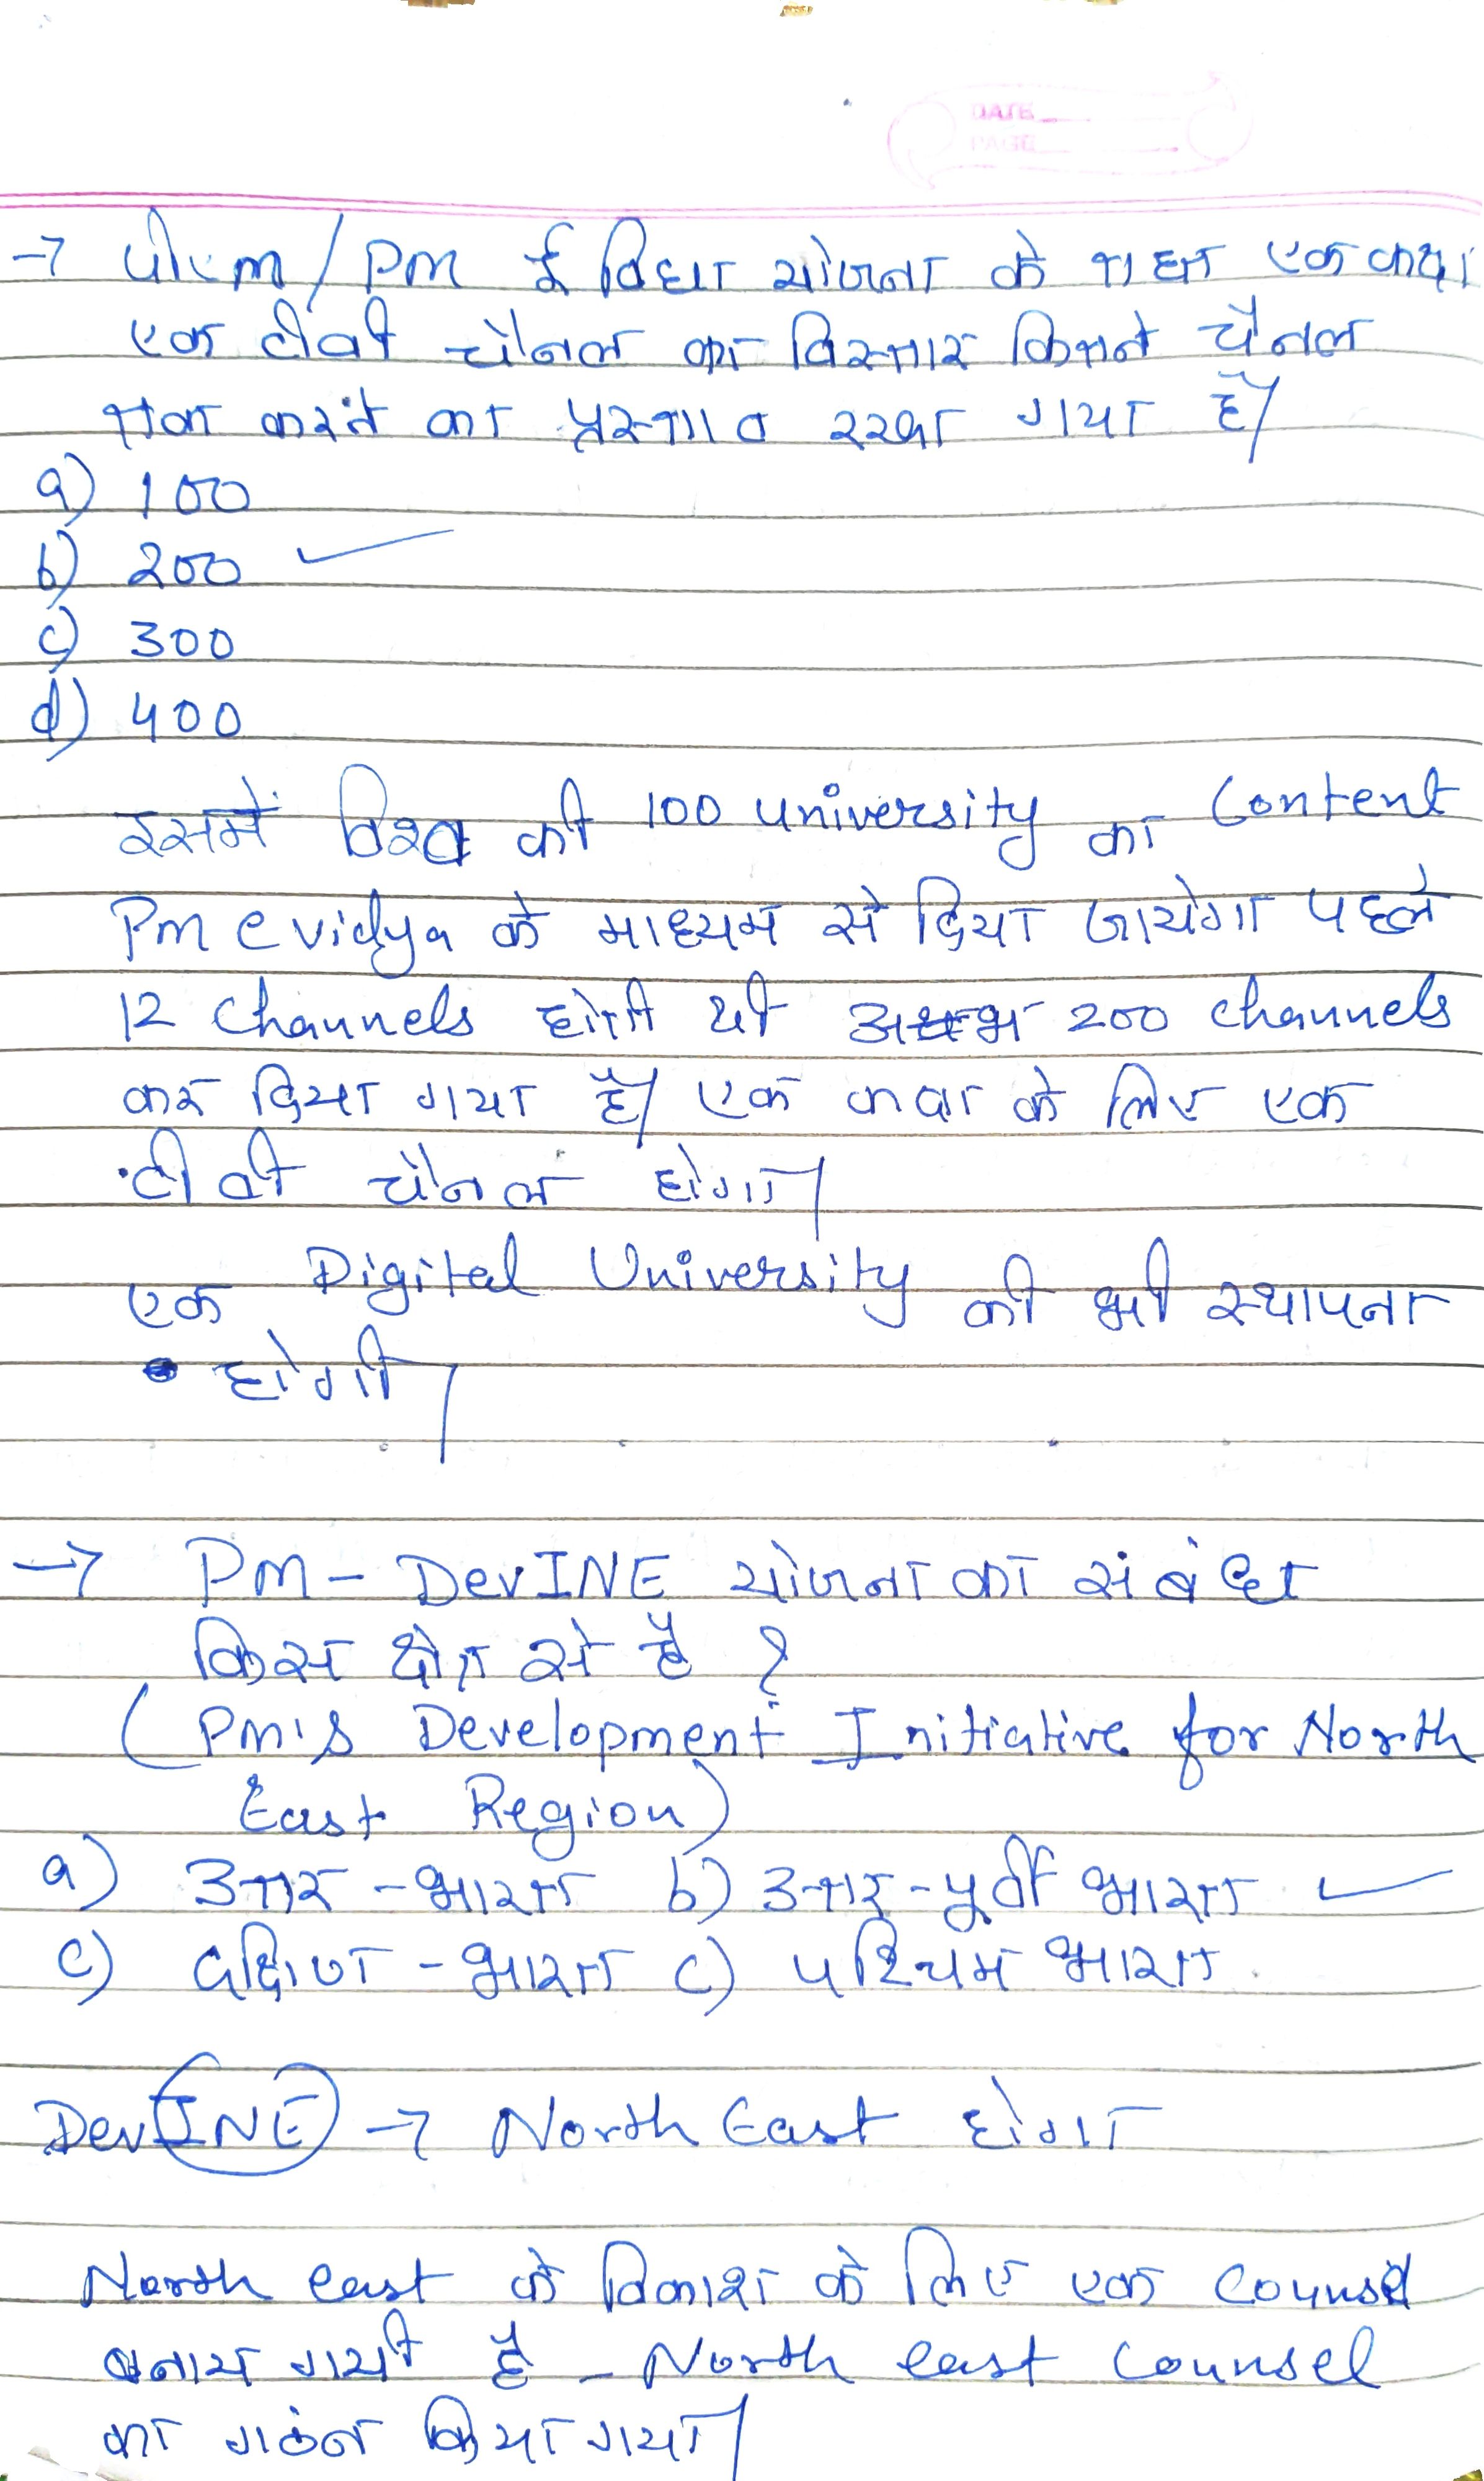 DATE
PAGE
→ पीएm / PM ई विद्या योजना के तहत एक कक्षा
एक टीवी चैनल का विस्तार कितने चैनल
तक करने का प्रस्ताव रखा गया है।
a) 100
b) 200 ✓
c) 300
d) 400
इसमें विश्व की 100 university का Content
Pm e vidya के माध्यम से दिया जायेगा पहले
12 channels होती थी 200 channels
कर दिया गया है। एक कक्षा के लिए एक
टी वी चैनल होगा।
एक Digital University की भी स्थापना
होगी।
→ PM - DevINE योजना का संबंध
किस क्षेत्र से है ?
(PM's Development Initiative for North
East Region)
a) उत्तर - भारत b) उत्तर - पूर्वी भारत ✓
c) दक्षिण - भारत c) पश्चिम भारत.
DevINE → North East होगा
North east के विकाश के लिए एक counsel
बनाय गयी है - North east counsel
का गठन किया गया।